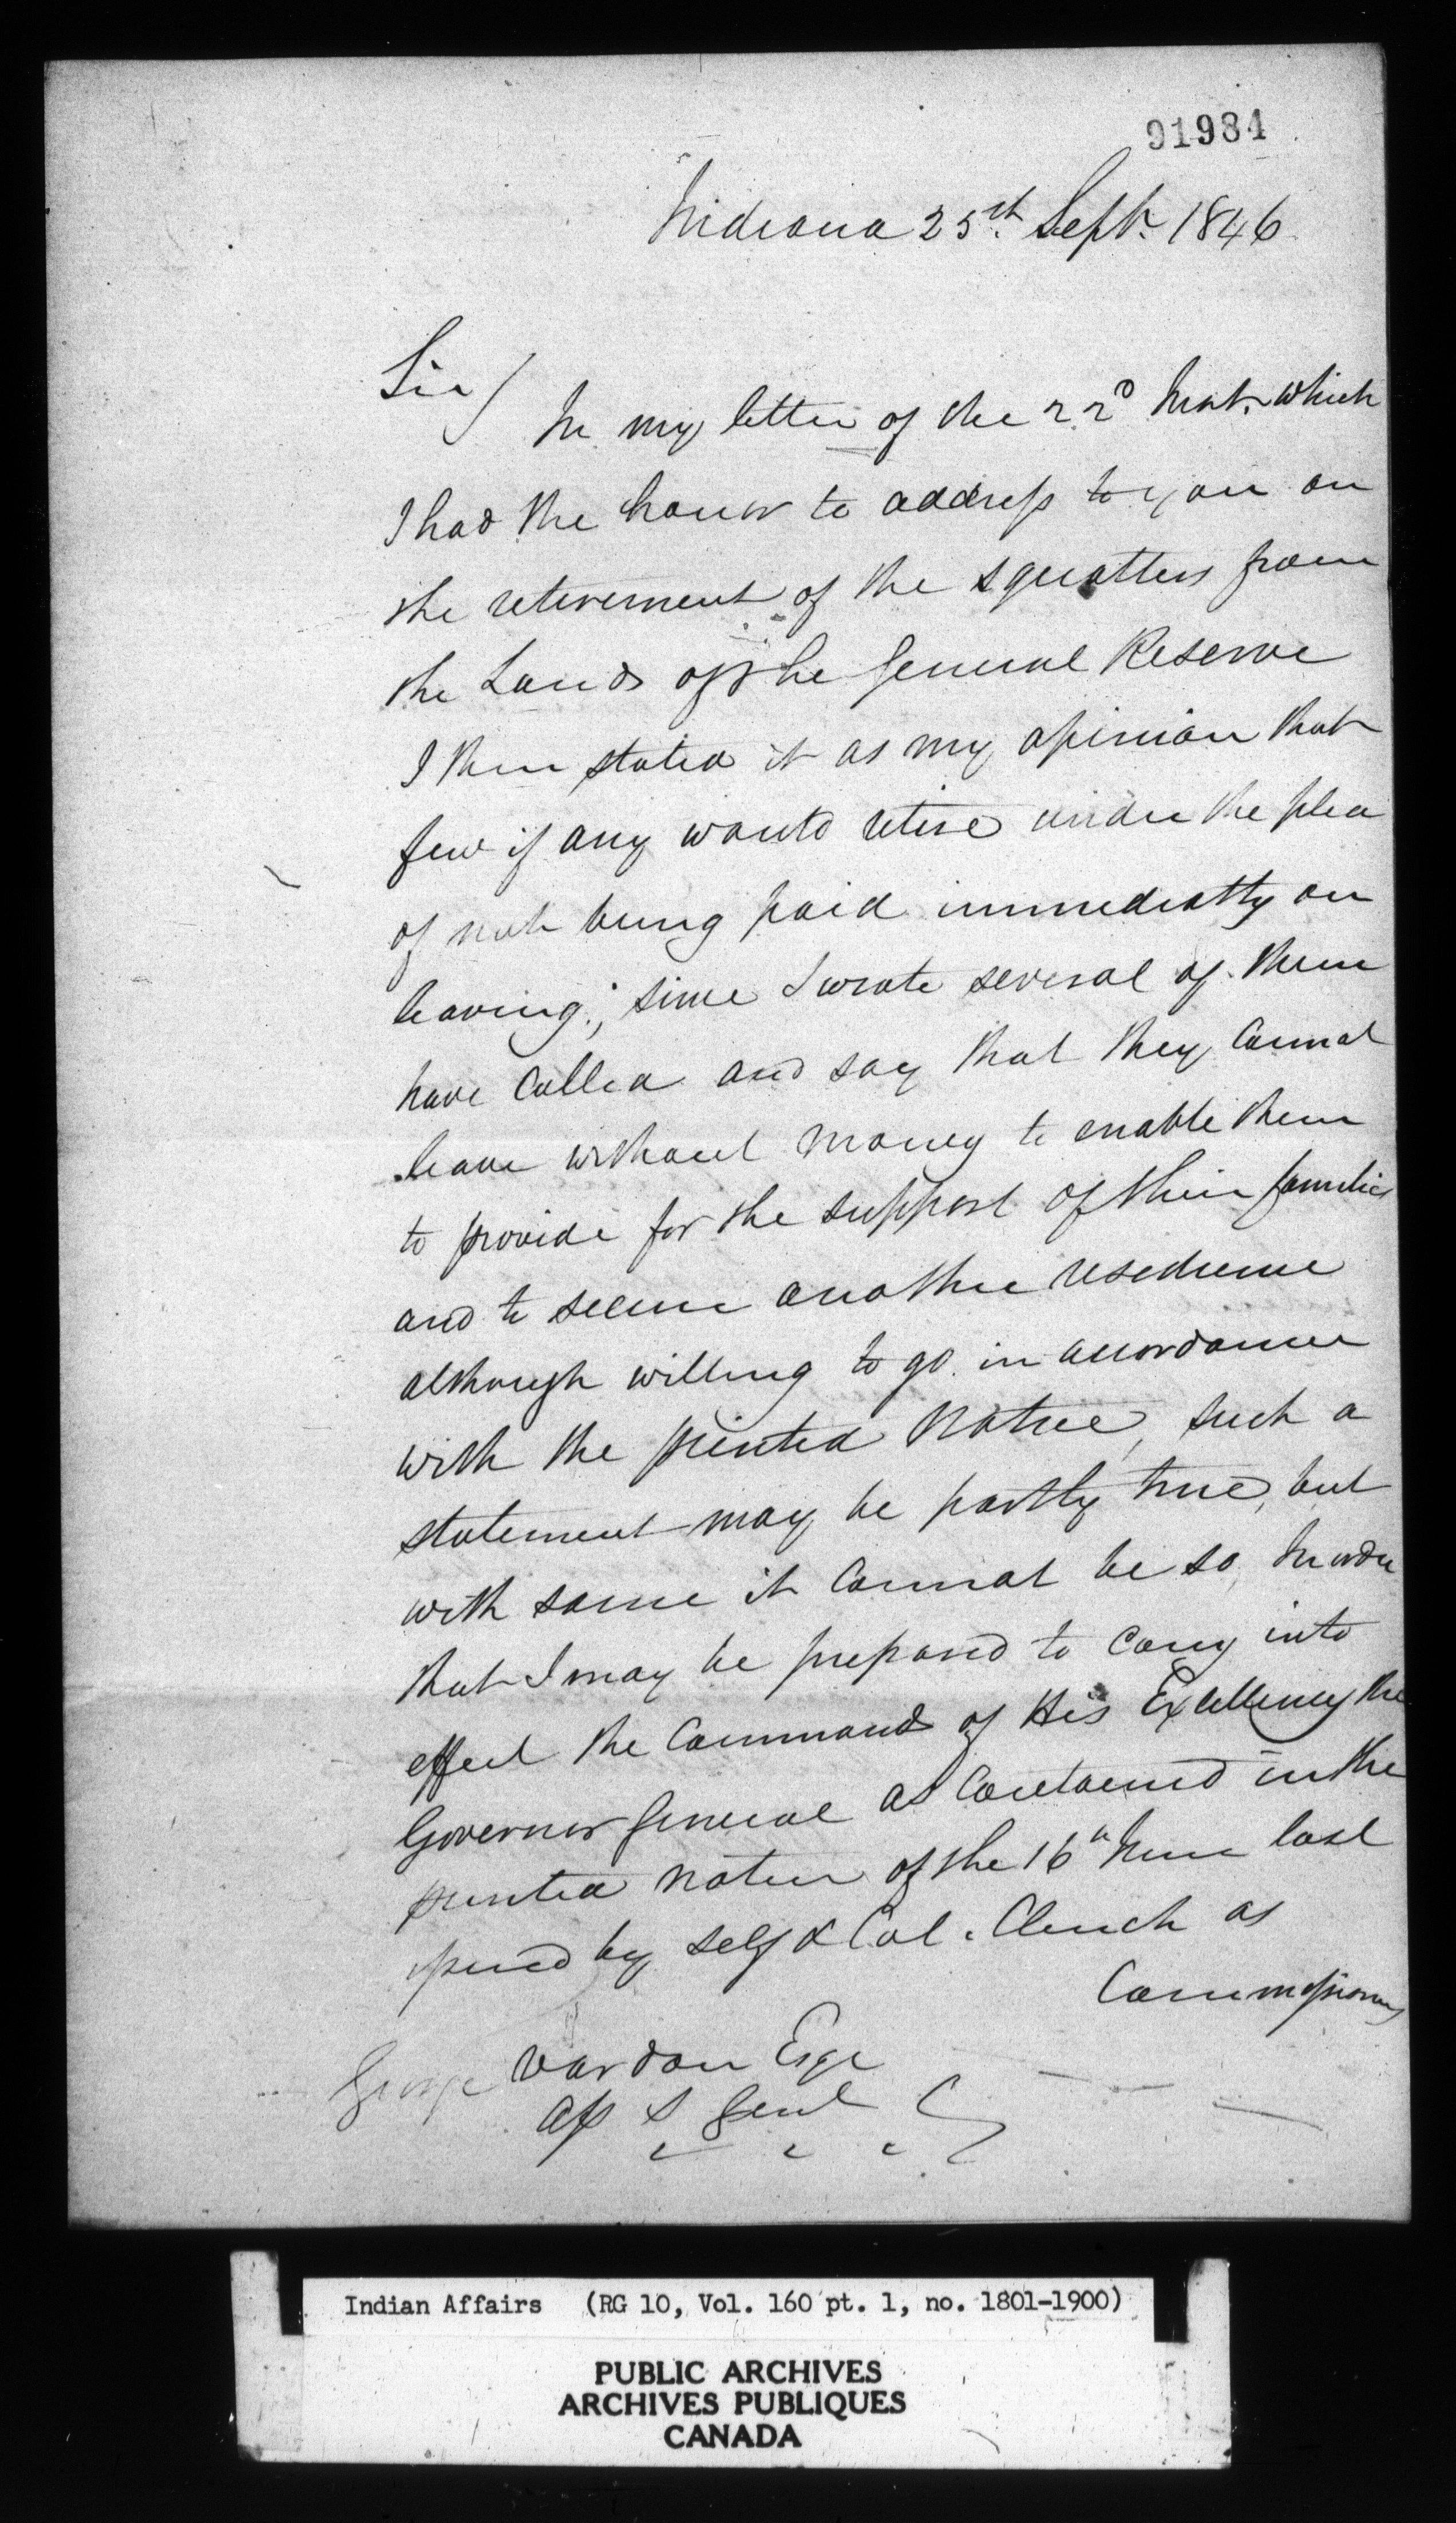 91984
Indiana 25th Sept. 1846
Sir/
In my letter of the 22d Inst. which
I had the honor to address to you on
the retirement of the squatters from
the Lands of the General Reserve
I then stated it as my opinion that
few if any would retire under the plea
of not being paid immediatly on
leaving; since I wrote several of them
have called and say that they cannot
leave without money to enable them
to provide for the support of their families
and to secure another residence
although willing to go in accordance
with the printed Notice, such a
statement may be partly true, but
with some it cannot be so, In order
that I may be prepared to carry into
effect the Command of His Excellency the
Governor General as contained in the
printed notice of the 16th June last
signed by self & Col. Clench as
Commissioners
George Vardon Esqr
Ass S Genl
Indian Affairs (RG 10, Vol. 160 pt. 1, no. 1801-1900)
PUBLIC ARCHIVES
ARCHIVES PUBLIQUES
CANADA